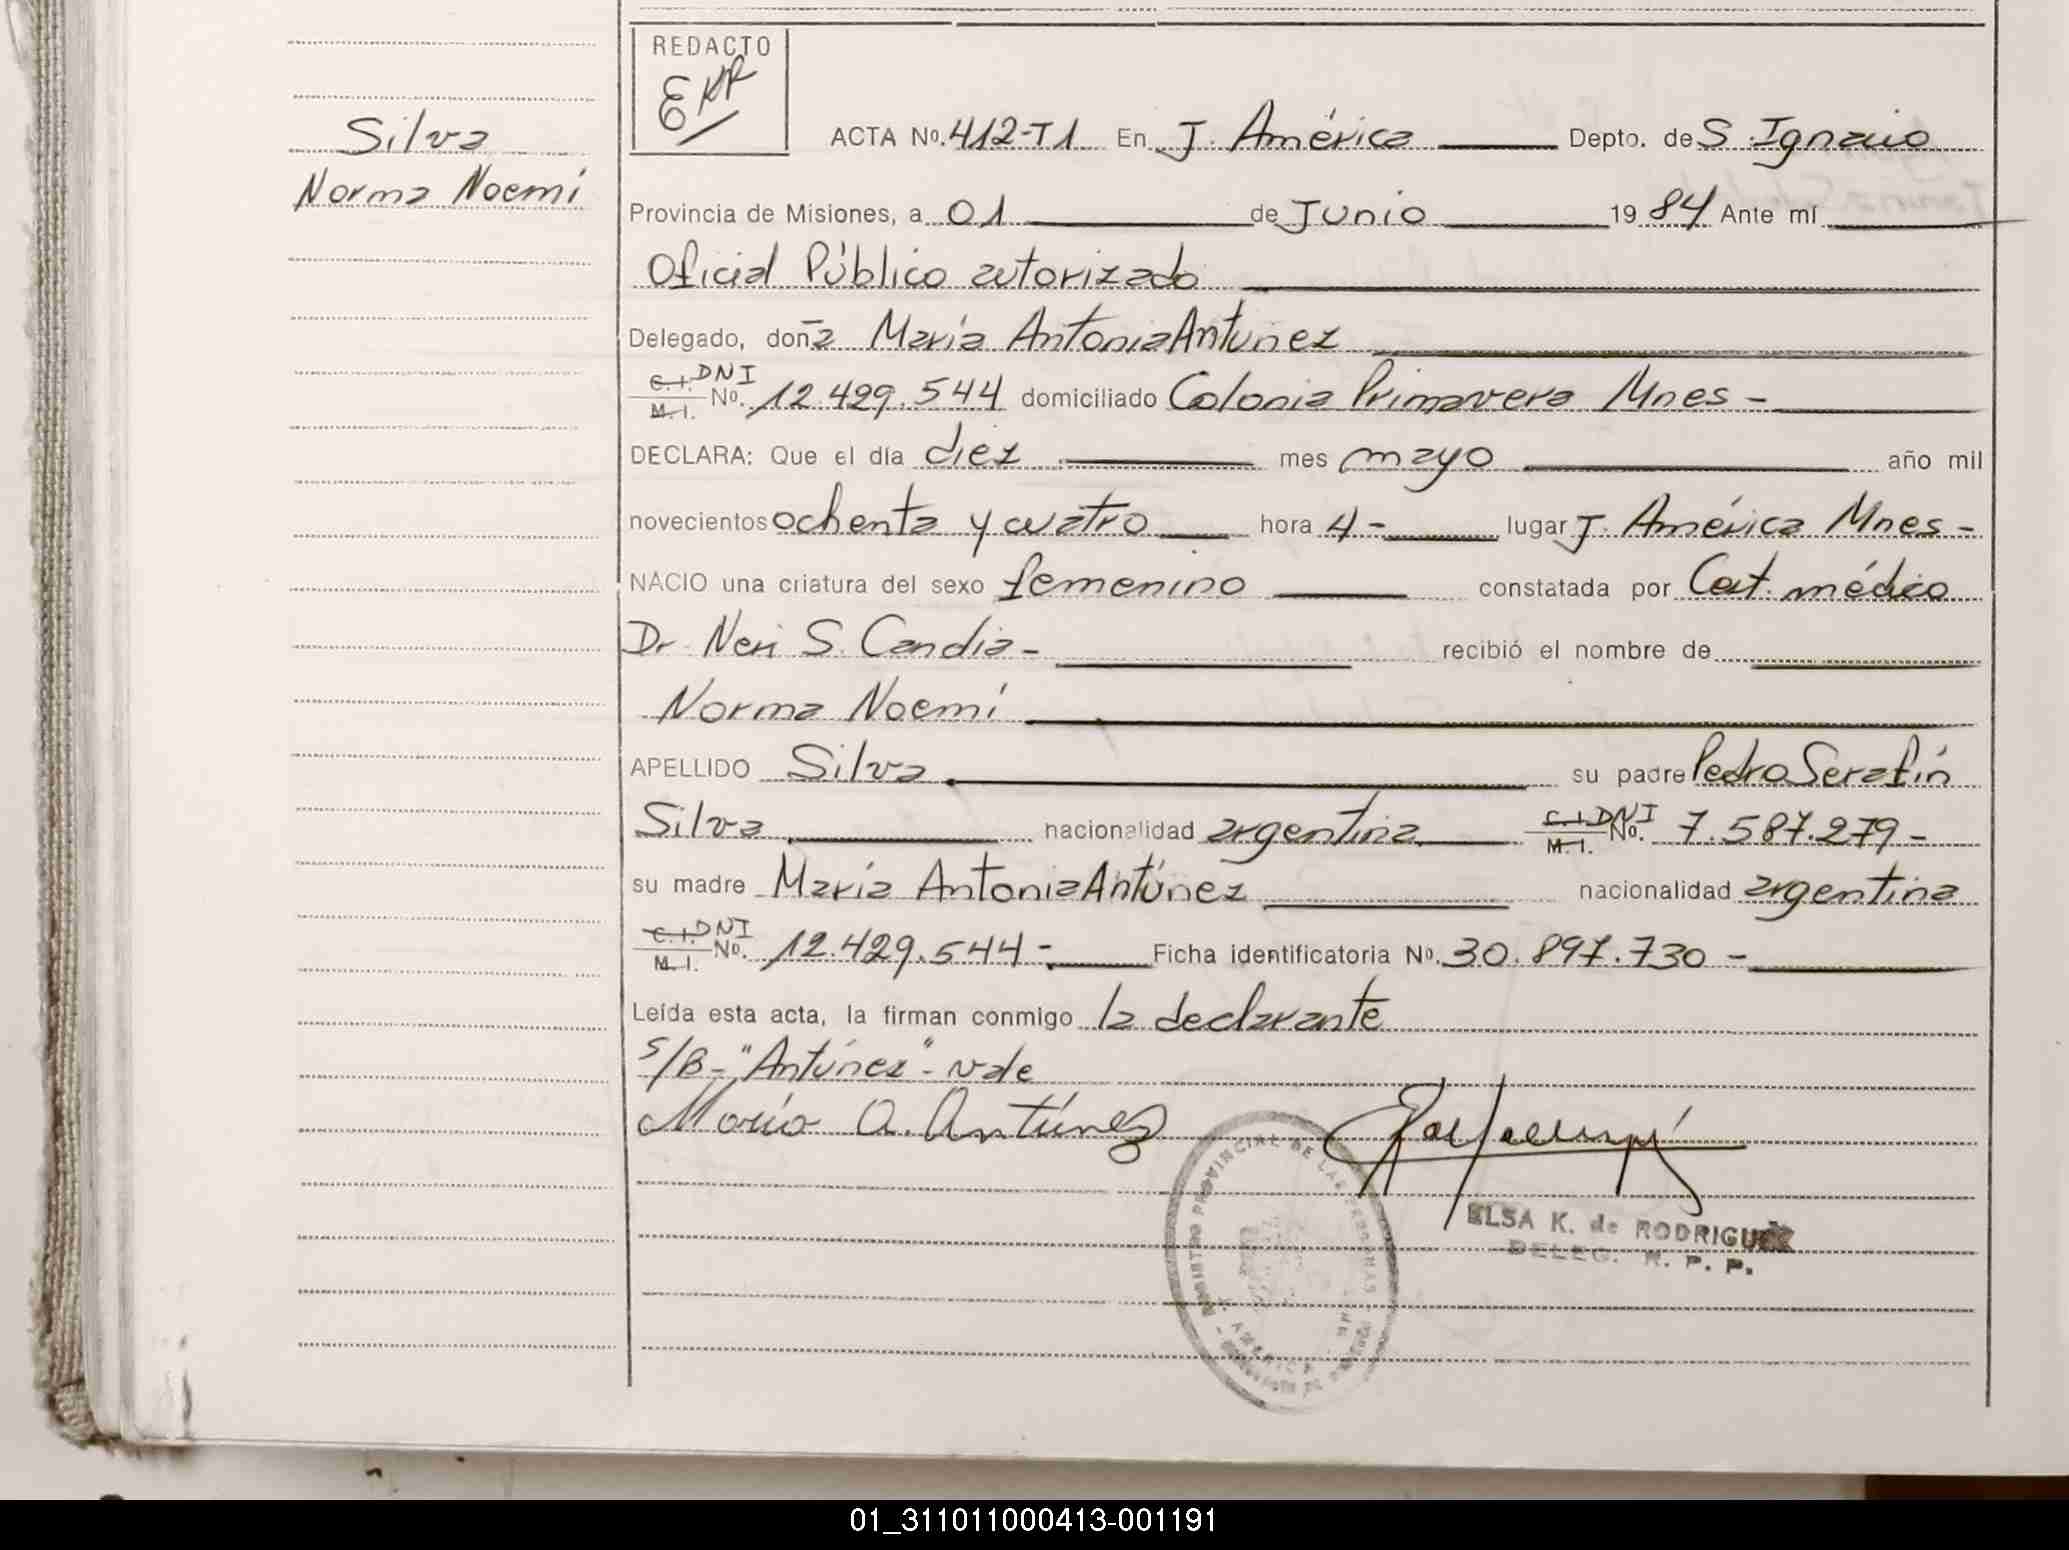 REDACTO
EKR
Silva
Norma Noemí
ACTA Nº. 412-T1 En J. América Depto. de S. Ignacio
Provincia de Misiones, a 01 de Junio 19 84 Ante mí
Oficial Público autorizado
Delegado, doña María Antonia Antunez
C.I. DNI
M.I. Nº. 12.429.544 domiciliado Colonia Primavera Mnes -
DECLARA: Que el día diez mes mayo año mil
novecientos ochenta y cuatro hora 4- lugar J. América Mnes -
NACIO una criatura del sexo femenino constatada por Cert. médico
Dr. Neri S. Candia - recibió el nombre de
Norma Noemí
APELLIDO Silva su padre Pedro Serafín
Silva nacionalidad argentina C.I. DNI M.I. Nº. 7.587.279 -
su madre María Antonia Antúnez nacionalidad argentina
C.I. DNI
M.I. Nº. 12.429.544 - Ficha identificatoria Nº. 30.897.730 -
Leída esta acta, la firman conmigo la declarante
S/B- "Antúnez" - vale
María A. Antúnez
REGISTRO PROVINCIAL DE LAS PERSONAS
ELSA K. de RODRIGUEZ
DELEG. R. P. P.
01_311011000413-001191